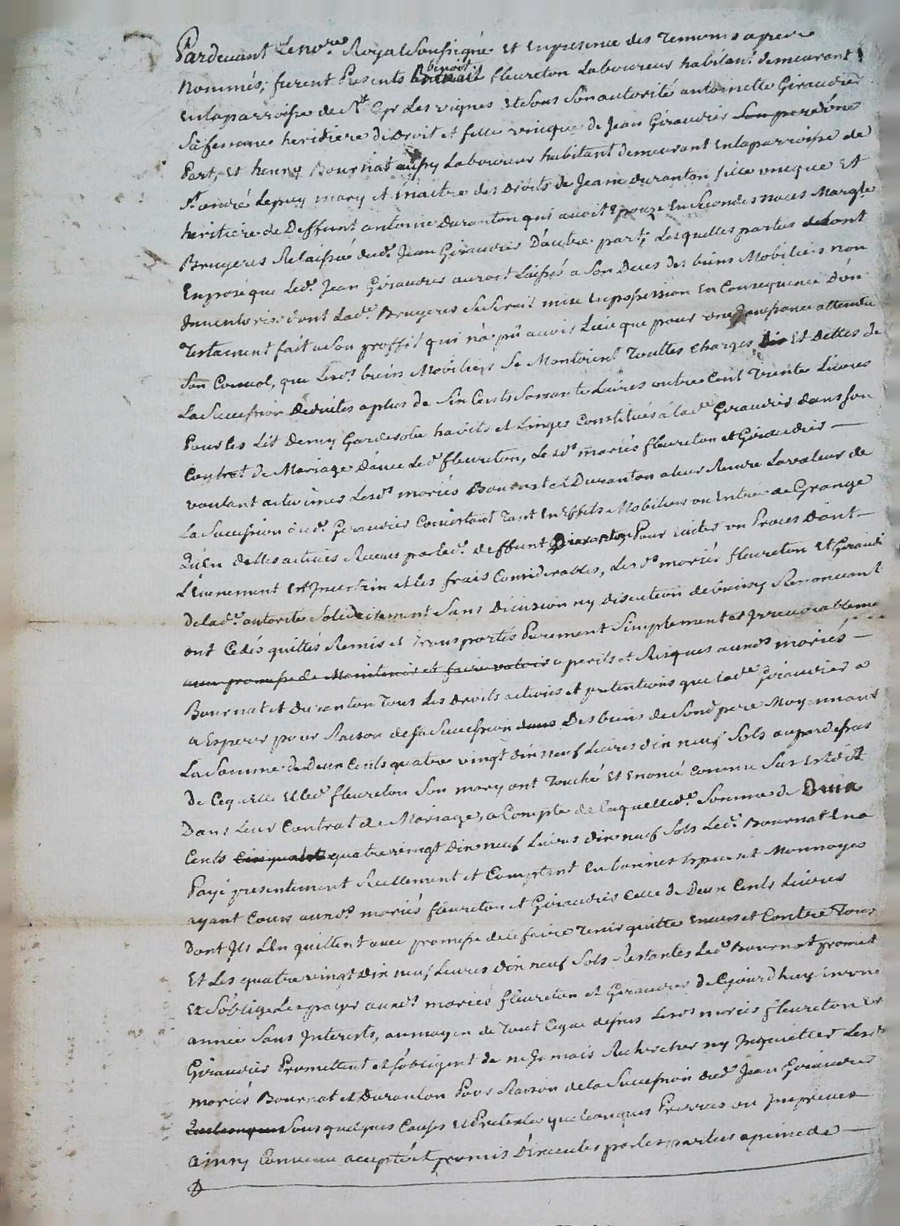 Pardevant Lenore Royal Soussigné Et Enpresence des Temoins apres
Nommés; furent Presents benoit fleureton Laboureur habitant demeurant
Enlaparroisse de St Cyr Les vignes Et Sous Son autorité antoinette Giraudier
Sa femme heritiere de Droit et fille unique de Jean Giraudier d'une
Part, Et henry Bournat aussy Laboureur habitant demeurant Enlaparroisse de
St andré Lepuy mary et maitre des Droits de Jeanne Duranton fille unique Et
heritiere de Deffunt antoine Duranton qui avoit Epouzé En Secondes noces Margte
Bruyeres Relaissée dudt Jean Giraudier D'autre part; Lesquelles parties ont
Exposé que Ledt Jean Giraudier auroit Laissé a Son Deces des biens Mobiliers non
Inventoriés dont Ladte Bruyeres Se Serait mise En possession En Consequence D'un
Testament fait a Son proffit qui n'a pû avoir Lieu que pour une Jouissance attendu
Son Convol, que Lesdt biens Mobiliers Se Montoient Touttes Charges Et dettes de
La Succession Deduites a plus de Six Cents Soixante Livres outre Cent Trente Livres
Pour les Lit Demy Garderobe habits et Linges Constitués à ladte Giraudier dans son
Contrat de Mariage d'avec Ledt fleureton, Lesdt mariés fleureton et Giraudier
voulant actionner Lesdt mariés Bournat et Duranton a leur Rendre La valeur de
La Succession dudt Giraudier Consistant Tant En Effets Mobiliers ou Entrée de Grange
Qu'en dettes actives Recues par Ledt deffunt Duranton Pour Eviter un Proces Dont
L'evenement Est Incertain et les frais Considerables, Lesdts mariés fleureton Et Giraudier
De ladte autorité Solidairement Sans division ny discution de biens y Renonceant
ont Cedés quittés Remis et Transportés Purement Simplement et Irrevocablement
a perils et Risques auxdts mariés
Bournat et Duranton Tous Les Droits actions et pretentions que ladte Giraudier a
a Esperer pour Raison de la Succession Des biens de Sondt pere Moyennant
La Somme de Deux Cents quatre vingt dix neuf Livres dix neuf Sols au par dessus
De Ce qu'elle Et ledt fleureton Son mary ont Touché Et Enoncé Comme Sus Est dit
Dans Leur Contrat de Mariage, a Compte de laquelle dte Somme de Deux
Cents quatre vingt dix neuf Livres dix neuf Sols Ledt Bournat En a
Payé presentement Reellement et Comptant En bonnes Especes et Monnoyes
ayant Cours auxdts mariés fleureton et Giraudier Celle de Deux Cents Livres
Dont Ils L'en quittent avec promesse de le faire Tenir quitte Envers et Contre Tous
Et Les quatre vingt dix neuf Livres dix neuf Sols Restantes Ledt Bournat promet
Et S'oblige Les payer auxdts mariés fleureton et Giraudier De Cejourd'huy En une
année Sans Interests, au moyen de Tout Ce que dessus Lesdts mariés fleureton Et
Giraudier Promettent et S'obligent de ne Jamais Rechercher ny Inquietter Lesdts
mariés Bournat et Duranton Pour Raison de la Succession dudt Jean Giraudier
Sous quelques Causes et Pretextes que Conques Prevues ou Imprevues
Ainsy Convenu accepté et promis D'Executer par les parties a peine de